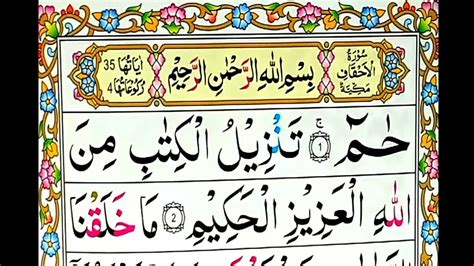 سُوْرَةُ الْاَحْقَافِ مَكِّيَّةٌ
بِسْمِ اللهِ الرَّحْمٰنِ الرَّحِيْمِ
اٰيَاتُهَا 35
رُكُوْعَاتُهَا 4
حٰمٓ ۚ ① تَنْزِيْلُ الْكِتٰبِ مِنَ
اللهِ الْعَزِيْزِ الْحَكِيْمِ ② مَا خَلَقْنَا